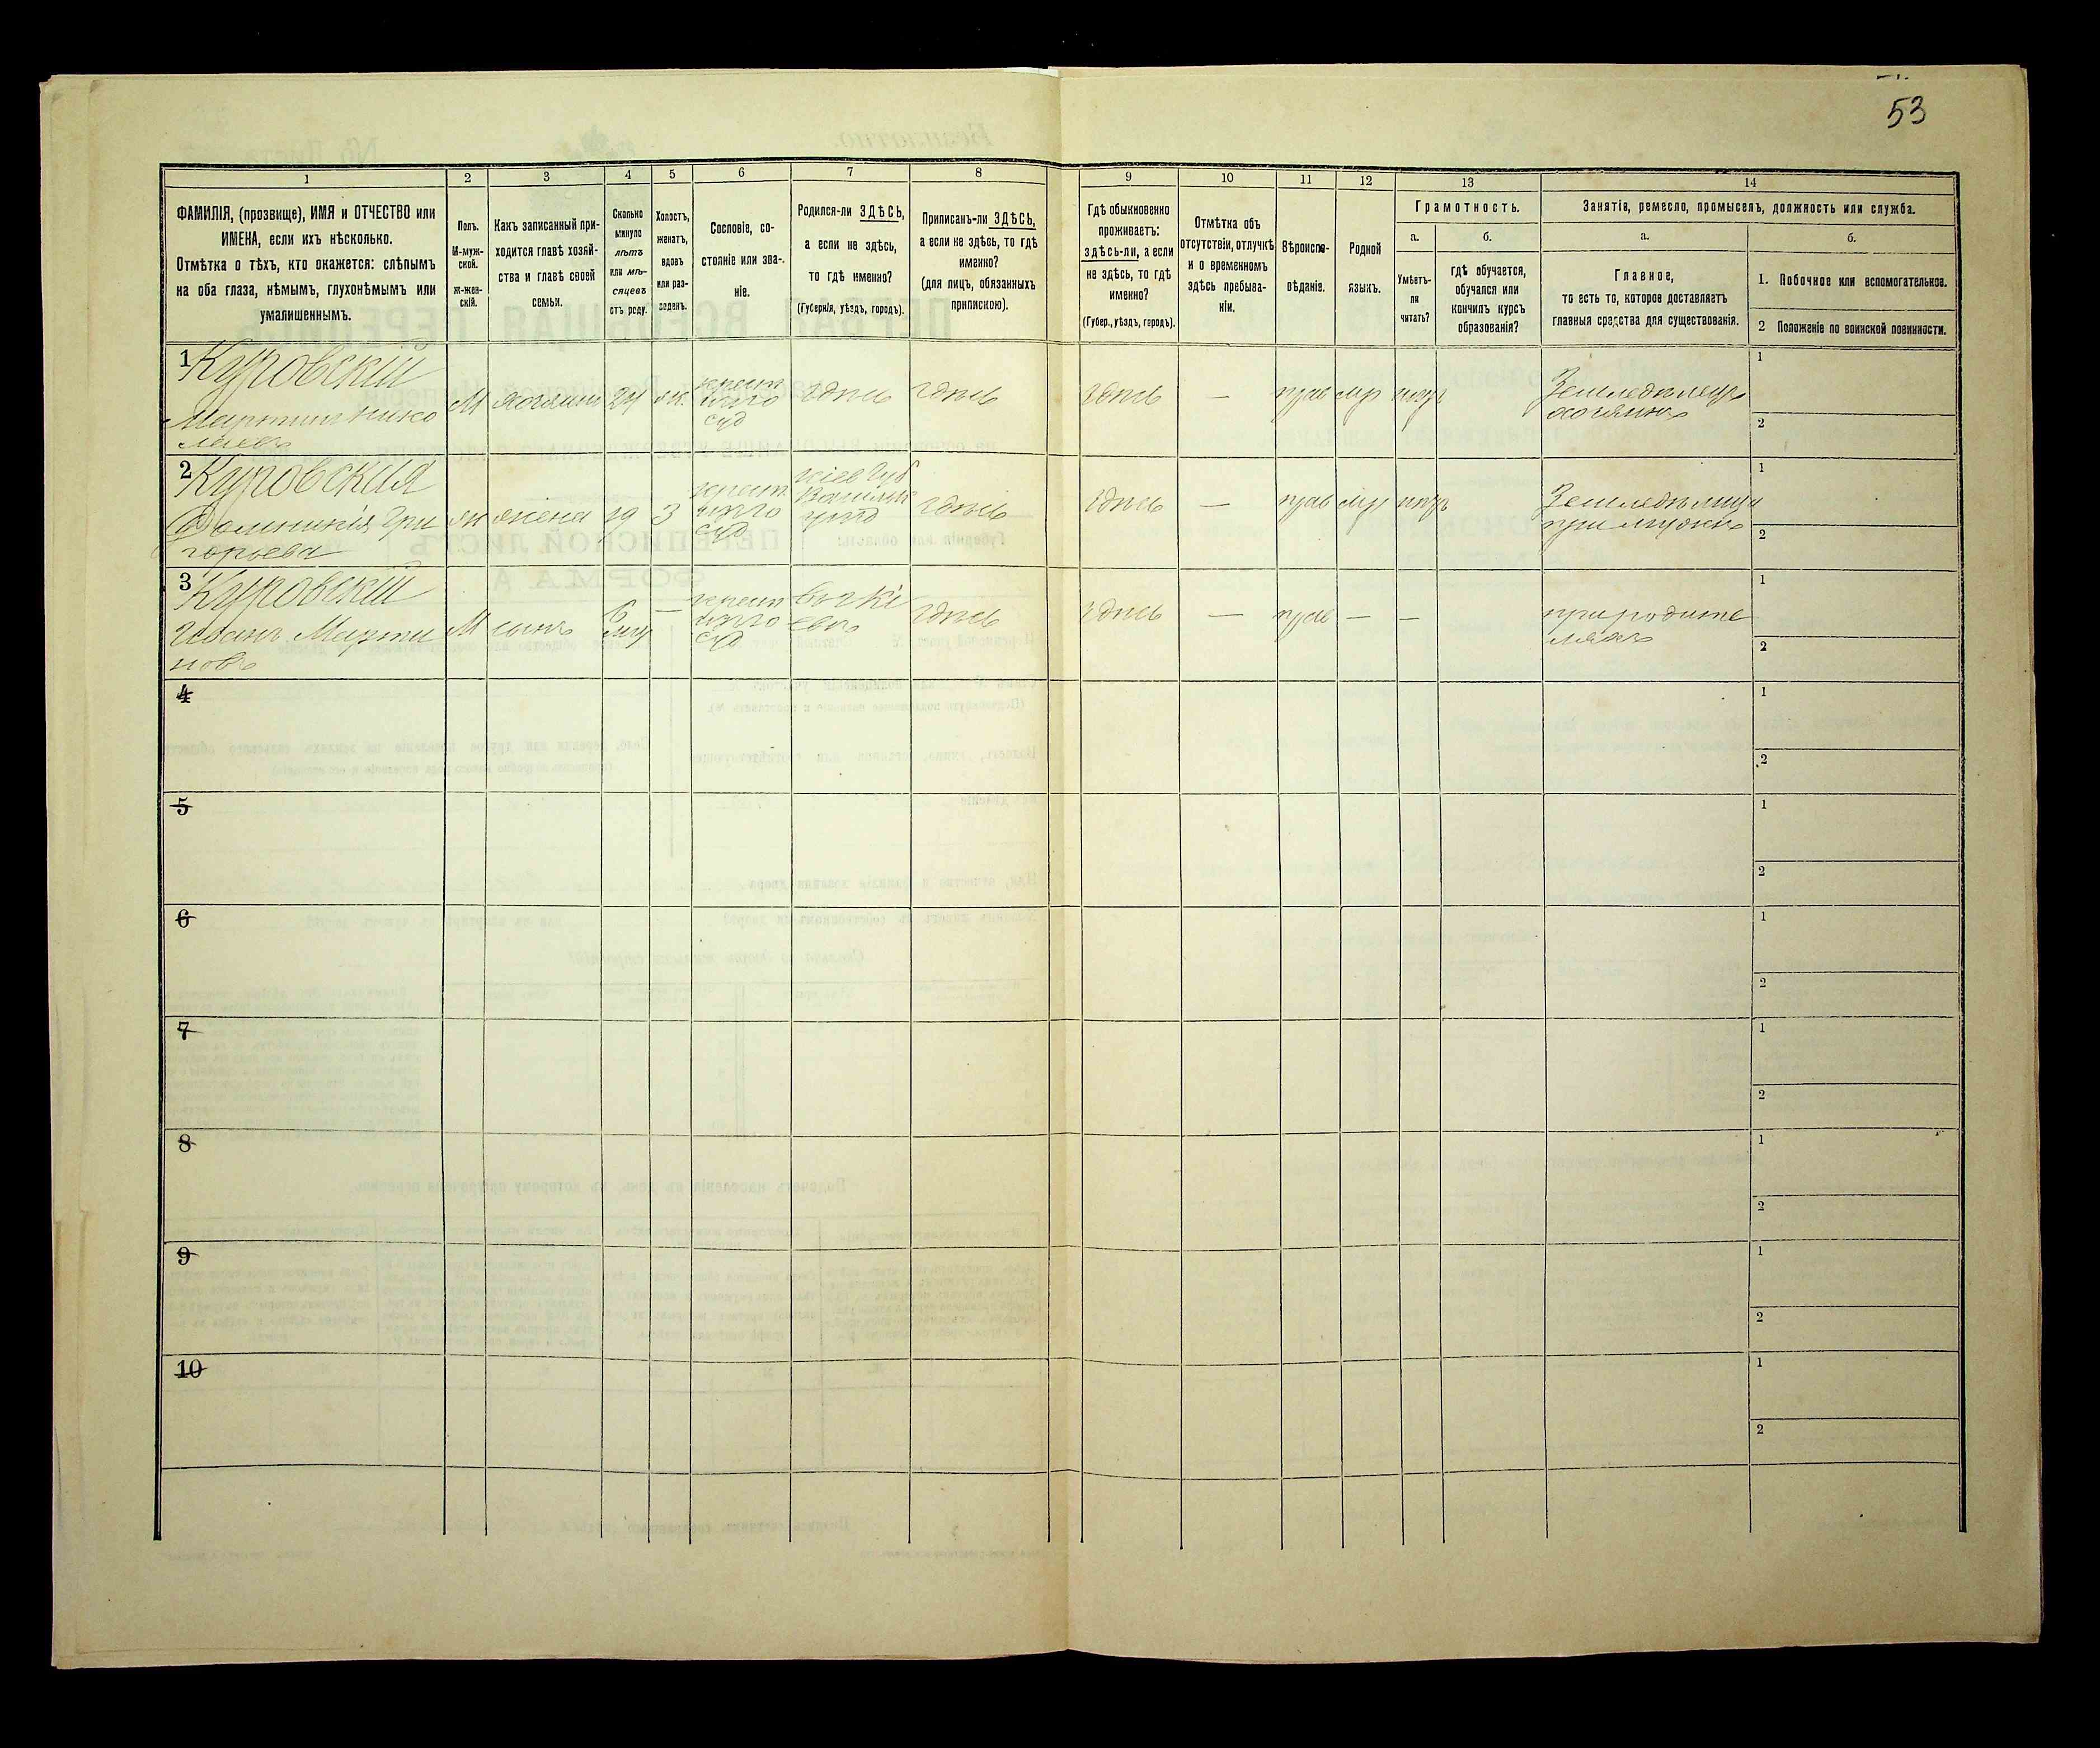 53
1
2
3
4
5
6
7
8
9
10
11
12
13
14
ФАМИЛІЯ, (прозвище), ИМЯ и ОТЧЕСТВО или
ИМЕНА, если ихъ нѣсколько.
Отмѣтка о тѣхъ, кто окажется: слѣпымъ
на оба глаза, нѣмымъ, глухонѣмымъ или
умалишеннымъ.
Полъ.
М-муж-
ской.
Ж-жен-
скій.
Какъ записанный при-
ходится главѣ хозяй-
ства и главѣ своей
семьи.
Сколько
минуло
лѣтъ
или мѣ-
сяцевъ
отъ роду.
Холостъ,
женатъ,
вдовъ
или раз-
веденъ.
Сословіе, со-
стояніе или зва-
ніе.
Родился-ли ЗДѢСЬ,
а если не здѣсь,
то гдѣ именно?
(Губернія, уѣздъ, городъ).
Приписанъ-ли ЗДѢСЬ,
а если не здѣсь, то гдѣ
именно?
(для лицъ, обязанныхъ
припискою).
Гдѣ обыкновенно
проживаетъ:
здѣсь-ли, а если
не здѣсь, то гдѣ
именно?
(Губер., уѣздъ, городъ).
Отмѣтка объ
отсутствіи, отлучкѣ
и о временномъ
здѣсь пребыва-
ніи.
Вѣроиспо-
вѣданіе.
Родной
языкъ.
Грамотность.
а.
Умѣетъ-
ли
читать?
б.
гдѣ обучается,
обучался или
кончилъ курсъ
образованія?
Занятія, ремесло, промыселъ, должность или служба.
а.
Главное,
то есть то, которое доставляетъ
главныя средства для существованія.
б.
1. Побочное или вспомогательное.
2 Положеніе по воинской повинности.
1 Куровскій
Мартинъ Нико
лаевъ
М
хозяинъ
24
жен.
крест
суд
здѣсь
здѣсь
здѣсь
—
прав
мр
Земледѣлецъ
хозяинъ
1
2
2 Куровская
Домникія Гри
горьева
ж
жена
19
З
крест
суд
кіев губ
здѣсь
здѣсь
—
прав
мр
Земледѣлица
при мужѣ
1
2
3 Куровскій
Иванъ Марти
новъ
М
сынъ
6
мѣс
—
крест
суд
въ Кі
евѣ
здѣсь
здѣсь
—
прав
—
—
при родите
ляхъ
1
2
4
1
2
5
1
2
6
1
2
7
1
2
8
1
2
9
1
2
10
1
2